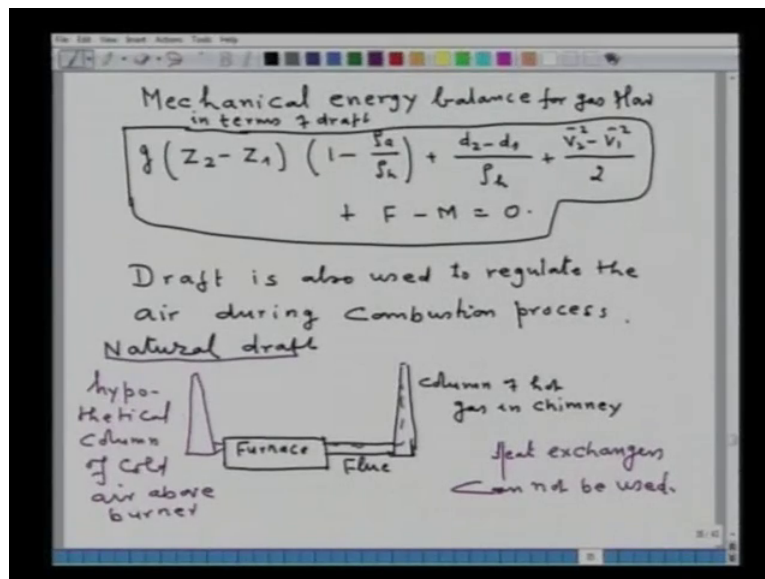 File Edit View Insert Actions Tools Help
Mechanical energy balance for gas flow
in terms of draft
g (Z₂ - Z₁) (1 - ρa/ρh) + (d₂ - d₁)/ρh + (v̄₂² - v̄₁²)/2
+ F - M = 0.
Draft is also used to regulate the
air during Combustion process.
Natural draft
hypo-
thetical
column
of cold
air above
burner
Furnace
Flue
column of hot
gas in chimney
Heat exchangers
Can not be used.